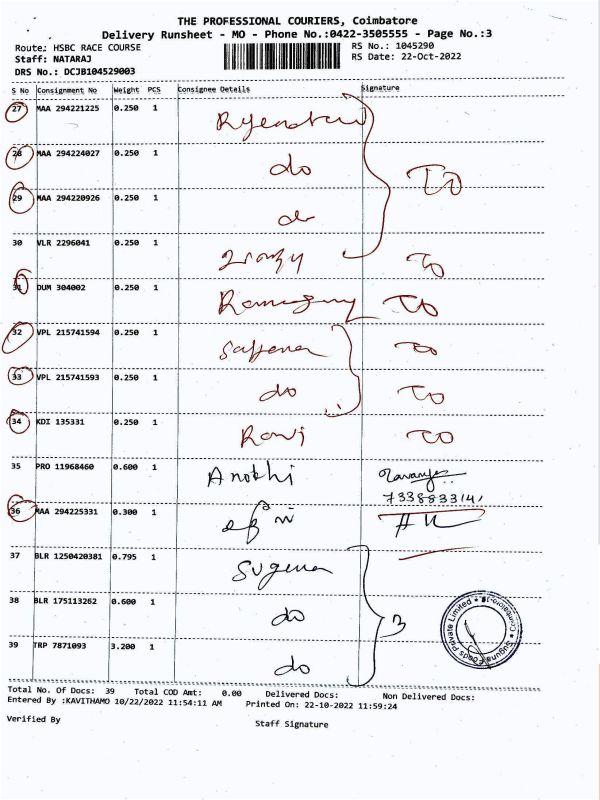 THE PROFESSIONAL COURIERS, Coimbatore
Delivery Runsheet - MO - Phone No.:0422-3505555 - Page No.:3
Route: HSBC RACE COURSE RS No.: 1045290
Staff: NATARAJ RS Date: 22-Oct-2022
DRS No.: DCJB104529003
S No Consignment No Weight PCS Consignee Details Signature
27 MAA 294221225 0.250 1
28 MAA 294224027 0.250 1 do
29 MAA 294220926 0.250 1 do
30 VLR 2296041 0.250 1
31 DUM 304002 0.250 1
32 VPL 215741594 0.250 1
33 VPL 215741593 0.250 1 do
34 KDI 135331 0.250 1 Ravi
35 PRO 11968460 0.600 1 Anokhi
36 MAA 294225331 0.300 1
37 BLR 1250420381 0.795 1 Suguna
38 BLR 175113262 0.600 1 do 3
39 TRP 7871093 3.200 1 do
Total No. Of Docs: 39 Total COD Amt: 0.00 Delivered Docs: Non Delivered Docs:
Entered By :KAVITHAMO 10/22/2022 11:54:11 AM Printed On: 22-10-2022 11:59:24
Verified By Staff Signature